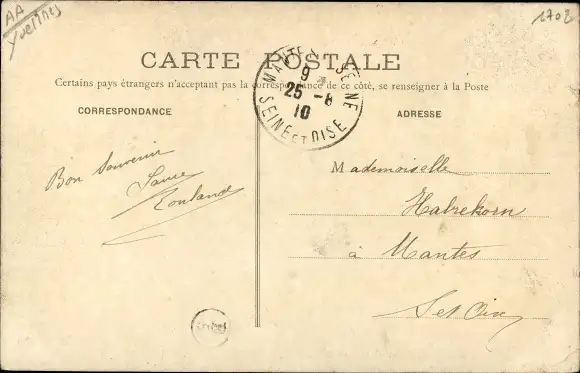 AA
Yvelines
1702
CARTE POSTALE
Certains pays étrangers n'acceptant pas la correspondance de ce côté, se renseigner à la Poste
CORRESPONDANCE
ADRESSE
MANTES S. SEINE
9
25 -8
10
SEINE ET OISE
Bon Souvenir
Rouland
Mademoiselle
Halrekorn
à Mantes
S et Oise